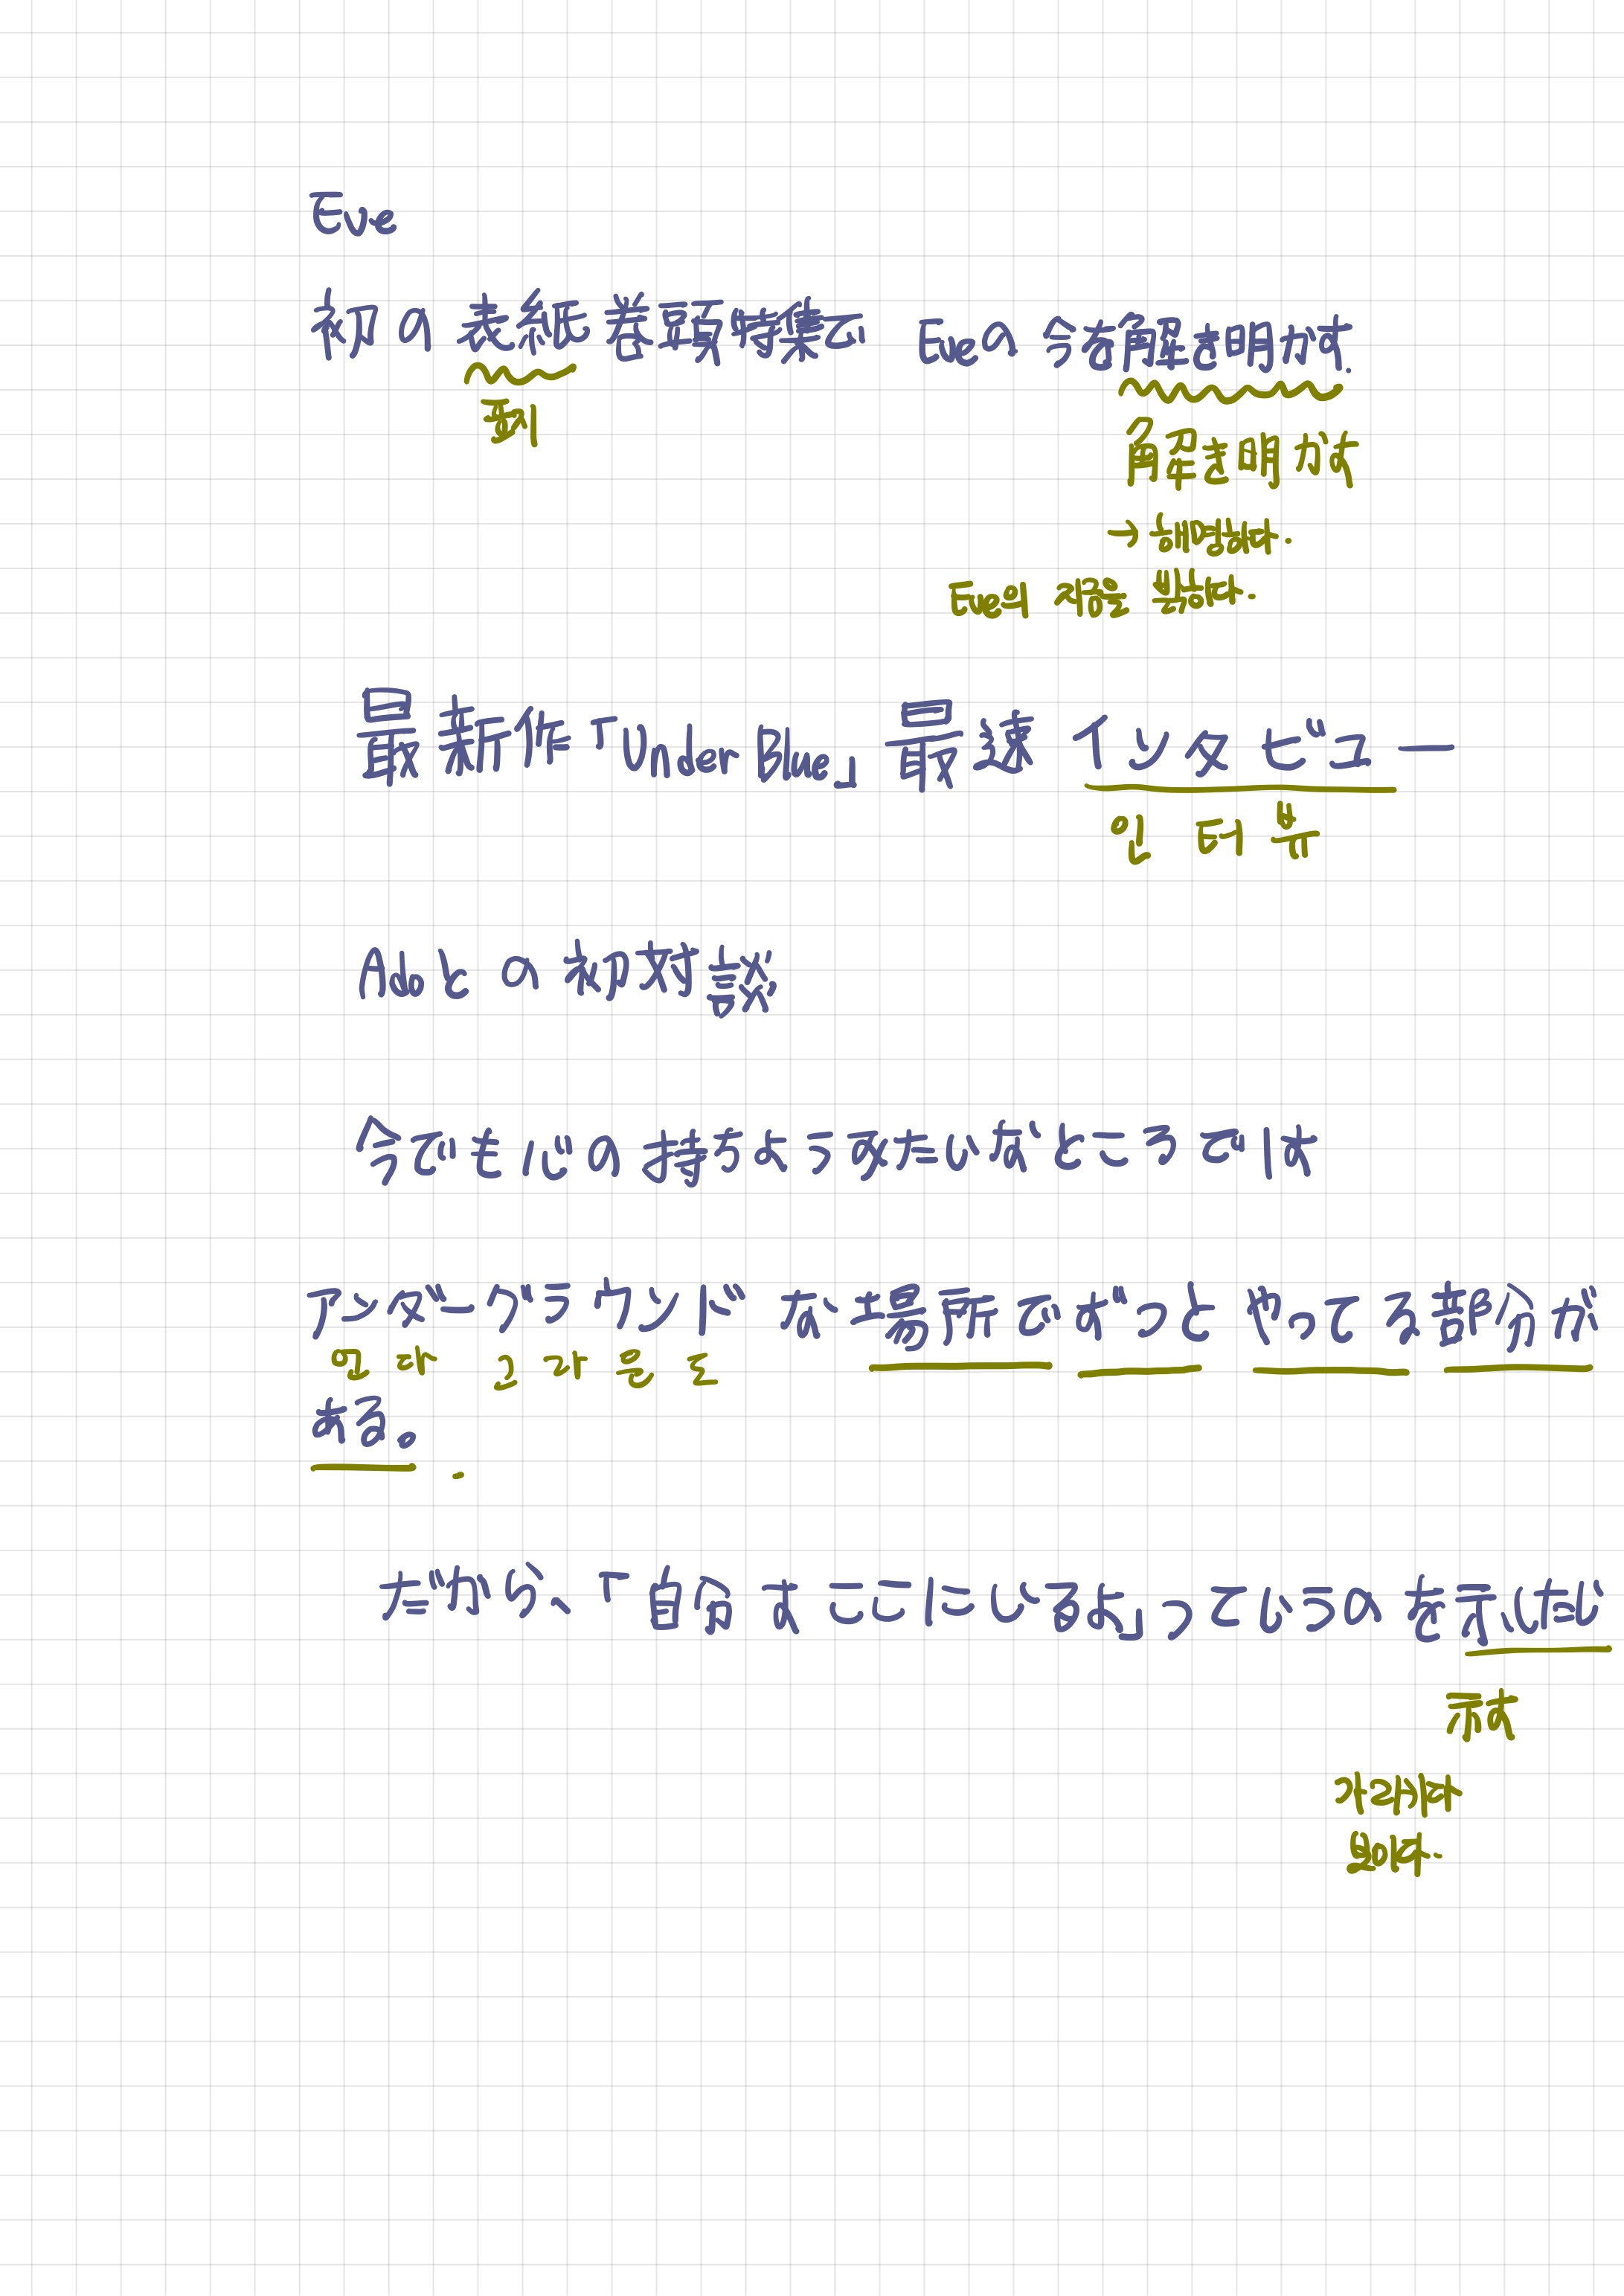 Eve
初の表紙巻頭特集で Eveの今を解き明かす.
표지
解き明かす
→ 해명하다.
Eve의 지금을 밝히다.
最新作「Under Blue」最速インタビュー
인터뷰
Adoとの初対談
今でも心の持ちようみたいなところでは
アンダーグラウンドな場所でずっとやってる部分が
언다 그라운도
ある。
だから、「自分すここにいるよ」っていうのを示したい
示す
가리키다
보이다.